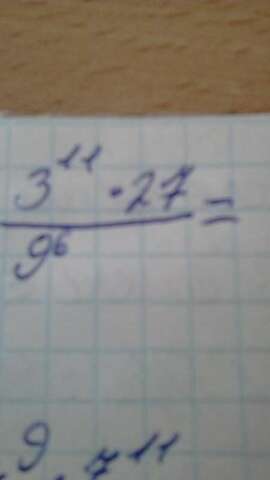 3¹¹ · 27
9⁶ =
9 · 7¹¹